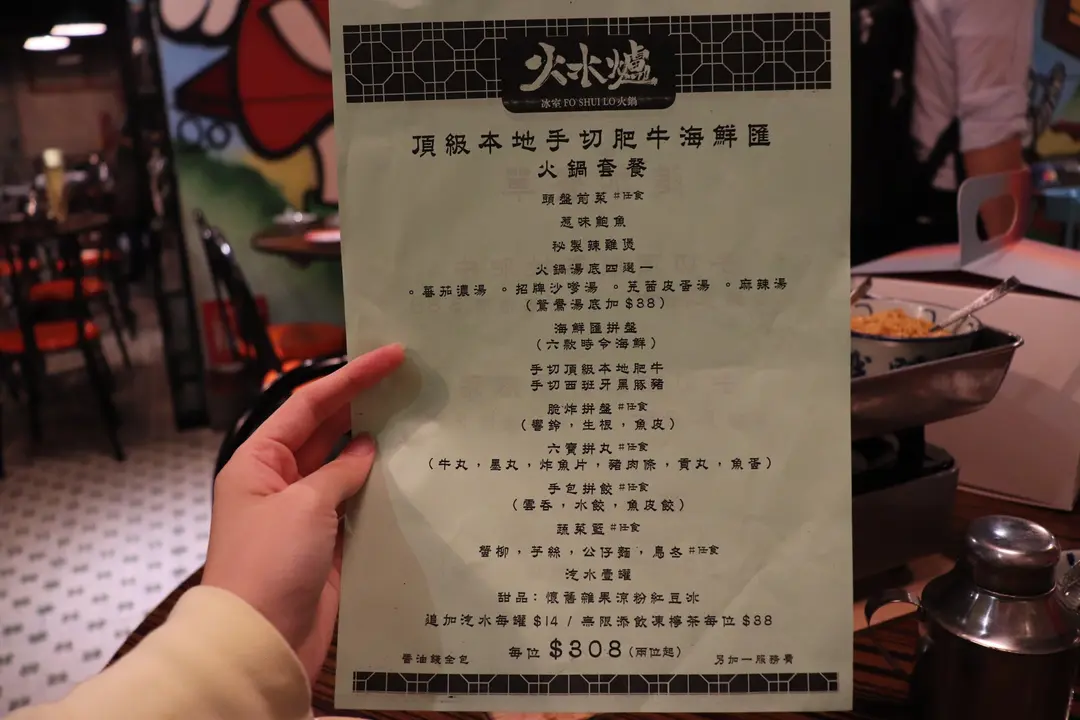 火水爐
冰室 FO SHUI LO 火鍋
頂級本地手切肥牛海鮮匯
火鍋套餐
頭盤前菜 #任食
惹味鮑魚
秘製辣雞煲
火鍋湯底四選一
。蕃茄濃湯 。招牌沙嗲湯 。芫茜皮蛋湯 。麻辣湯
(鴛鴦湯底加 $38)
海鮮匯拼盤
(六款時令海鮮)
手切頂級本地肥牛
手切西班牙黑豚豬
脆炸拼盤 #任食
(響鈴，生根，魚皮)
六寶拼丸 #任食
(牛丸，墨丸，炸魚片，豬肉條，貢丸，魚蛋)
手包拼餃 #任食
(雲吞，水餃，魚皮餃)
蔬菜籃 #任食
蟹柳，芋絲，公仔麵，烏冬 #任食
汽水壹罐
甜品：懷舊雜果涼粉紅豆冰
追加汽水每罐 $14 / 無限添飲凍檸茶每位 $38
醬油錢全包 每位 $308 (兩位起) 另加一服務費